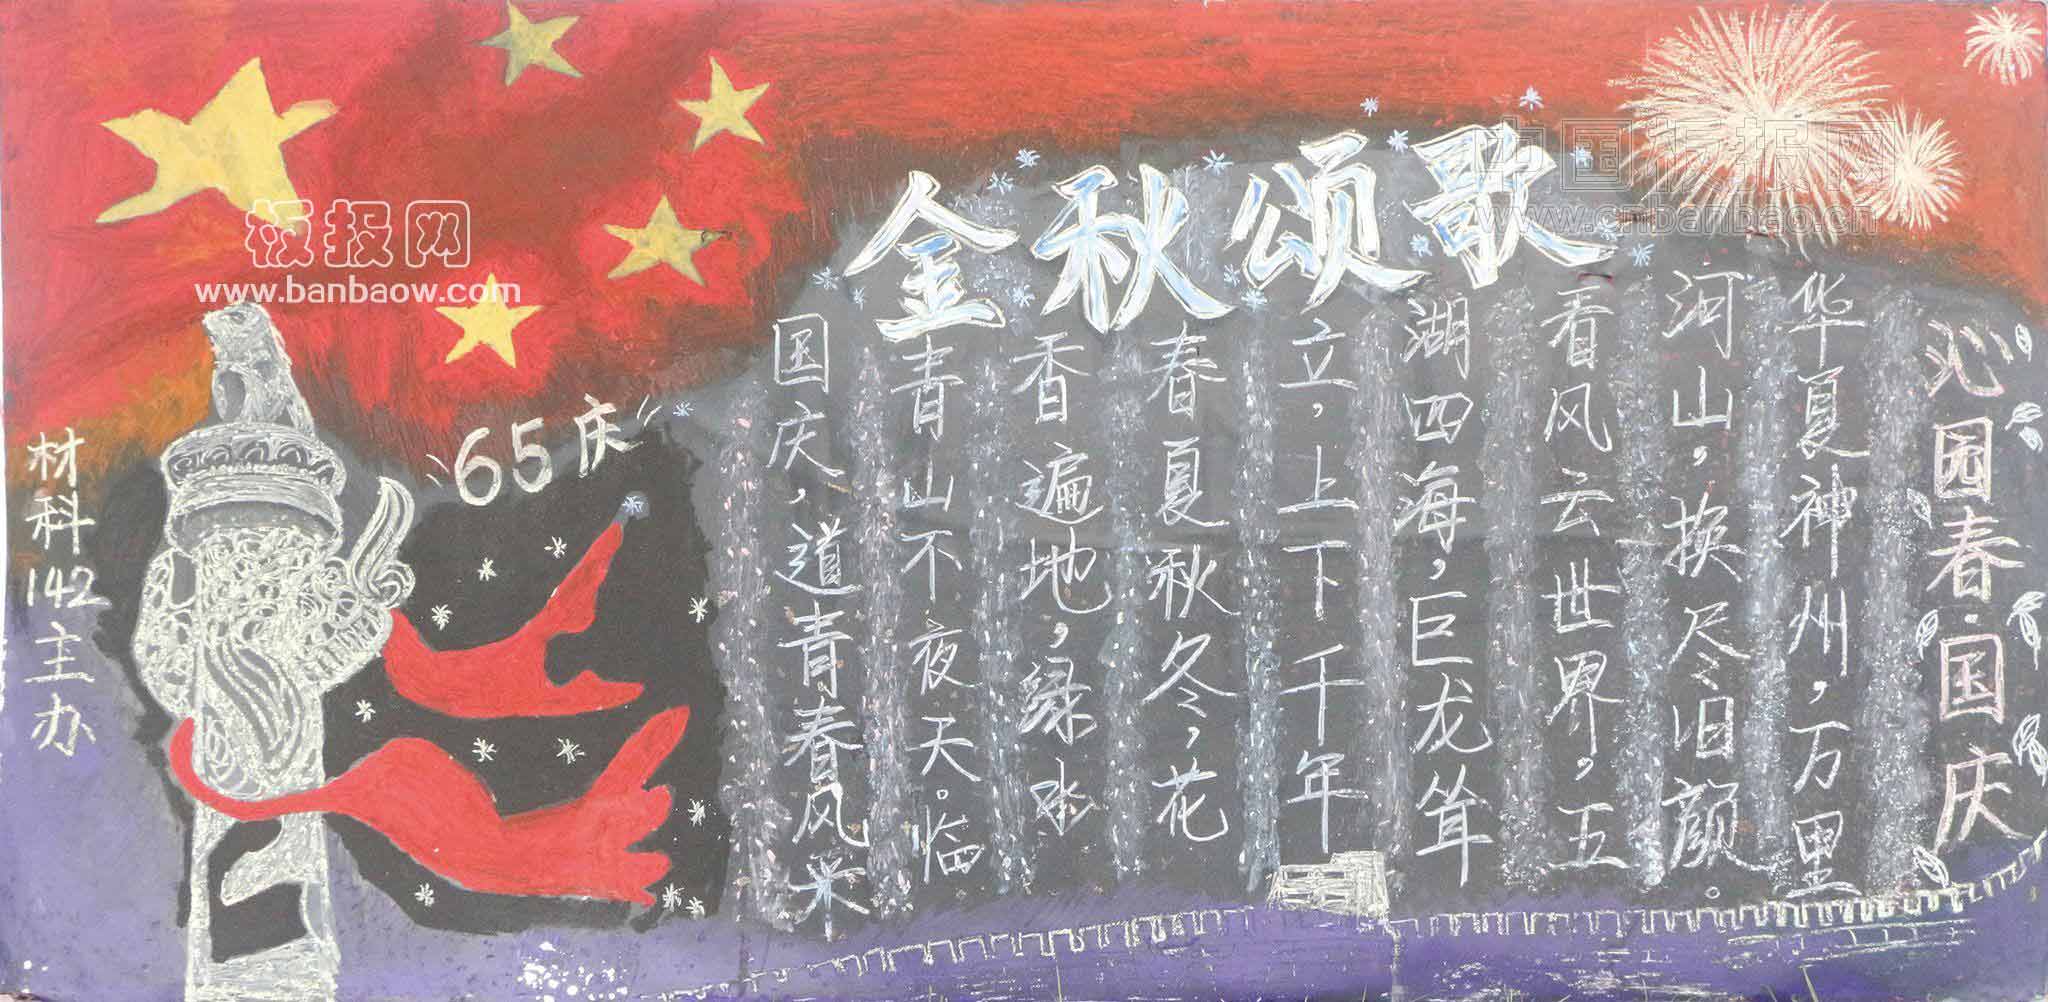 金秋颂歌
沁园春·国庆
华夏神州，万里
河山，换尽旧颜。
看风云世界，五
湖四海，巨龙耸
立，上下千年
春夏秋冬，花
香遍地，绿水
青山不夜天。临
国庆，道青春风采
“65庆”
材科142主办
板报网
www.banbaow.com
中国板报网
www.cnbanbao.cn